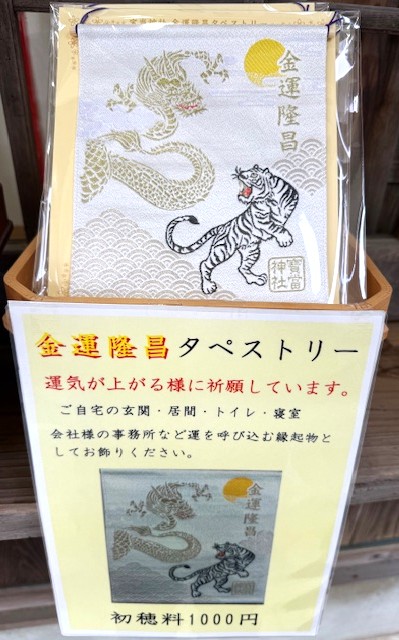 寳當神社 金運隆昌タペストリー
金運隆昌
寳當
神社
金運隆昌タペストリー
運気が上がる様に祈願しています。
ご自宅の玄関・居間・トイレ・寝室
会社様の事務所など運を呼び込む縁起物と
してお飾りください。
金運隆昌
初穂料1000円